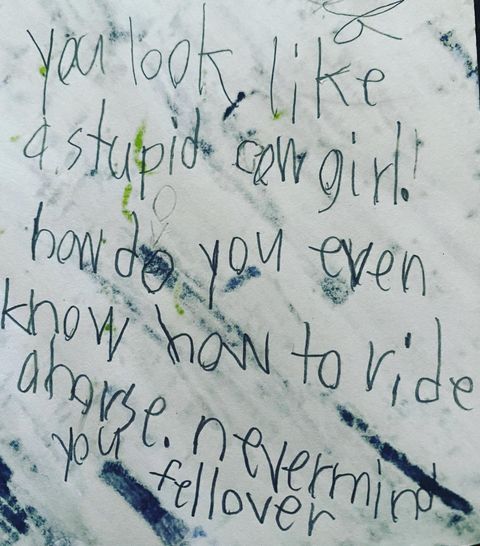 you look like
a stupid cow girl!
how do you even
know how to ride
a horse. nevermind
you fell over